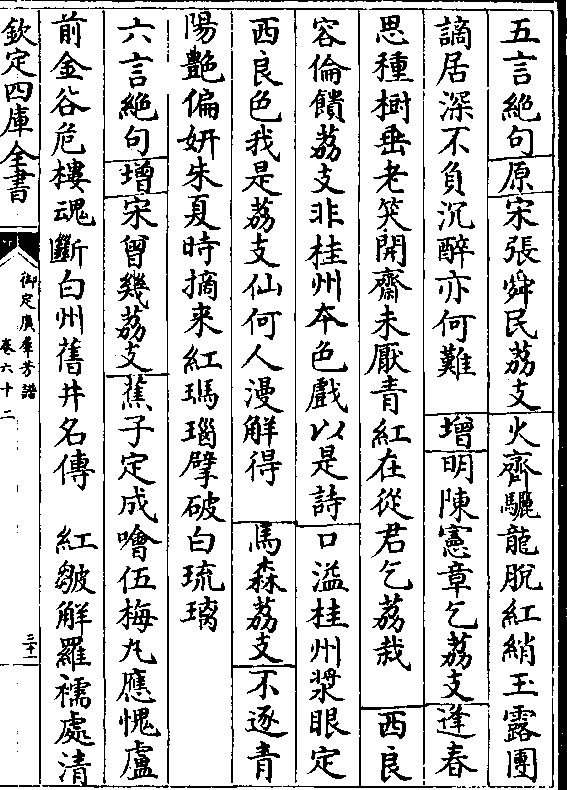 五言絶句原宋張舜民荔支火齊驪龍脫紅綃玉露團
謫居深不負沉醉亦何難　增明陳憲章乞荔支逢春
思種樹垂老笑開齋未厭青紅在從君乞荔栽　西良
容倫饋荔支非桂州本色戲以是詩口溢桂州漿眼定
西良色我是荔支仙何人漫解得　馬森荔支不逐青
陽艷偏妍朱夏時摘来紅瑪瑙擘破白琉璃
六言絶句增宋曾幾荔支蕉子定成噲伍梅丸應愧盧
前金谷危樓魂斷白州舊井名傳　紅皺解羅襦處清
欽定四庫全書
御定廣羣芳譜
卷六十二
三十一